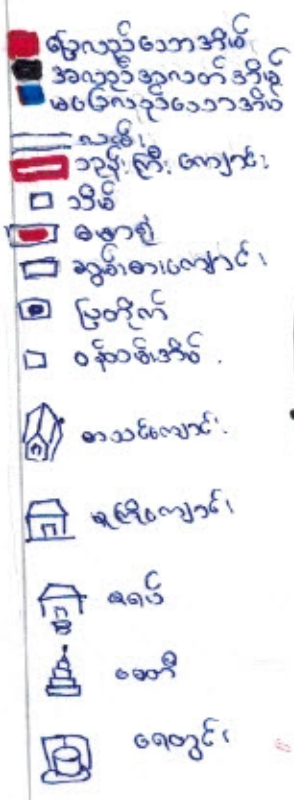 ပြေလည်သောအိမ်
အလည်အလတ်အိမ်
မပြေလည်သောအိမ်
လမ်း
ဘုန်းကြီးကျောင်း
သိမ်
ဓမ္မာရုံ
ဆွမ်းစားကျောင်း
ပြတိုက်
ဝန်ထမ်းအိမ်
စာသင်ကျောင်း
မူကြိုကျောင်း
ဇရပ်
စေတီ
ရေတွင်း